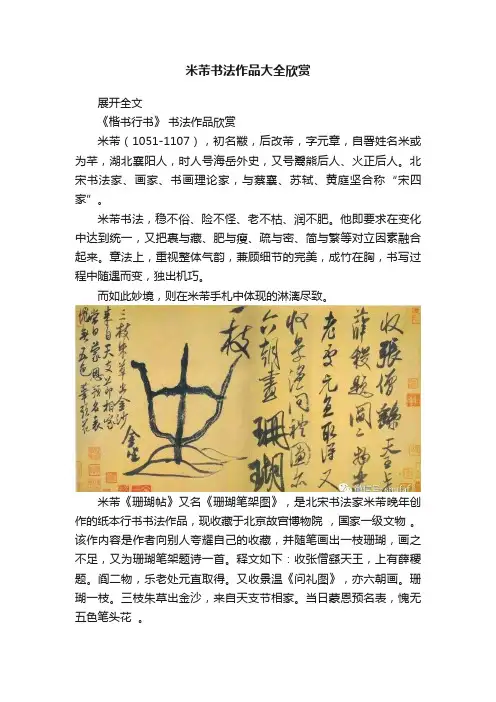 米芾书法作品大全欣赏
展开全文
《楷书行书》 书法作品欣赏
米芾（1051-1107），初名黻，后改芾，字元章，自署姓名米或
为芊，湖北襄阳人，时人号海岳外史，又号鬻熊后人、火正后人。北
宋书法家、画家、书画理论家，与蔡襄、苏轼、黄庭坚合称“宋四
家”。
米芾书法，稳不俗、险不怪、老不枯、润不肥。他即要求在变化
中达到统一，又把裹与藏、肥与瘦、疏与密、简与繁等对立因素融合
起来。章法上，重视整体气韵，兼顾细节的完美，成竹在胸，书写过
程中随遇而变，独出机巧。
而如此妙境，则在米芾手札中体现的淋漓尽致。
收張僧繇天王上
薛稷題閻二物樂
老處元直取得又
收景溫問禮圖亦
六朝畫珊瑚
一枝
金坐
三枝朱草出金沙
來自天支節相家
當日蒙恩預名表
愧無五色筆頭花
米芾《珊瑚帖》又名《珊瑚笔架图》，是北宋书法家米芾晚年创
作的纸本行书书法作品，现收藏于北京故宫博物院 ，国家一级文物 。
该作内容是作者向别人夸耀自己的收藏，并随笔画出一枝珊瑚，画之
不足，又为珊瑚笔架题诗一首。释文如下：收张僧繇天王，上有薛稷
题。阎二物，乐老处元直取得。又收景温《问礼图》，亦六朝画。珊
瑚一枝。三枝朱草出金沙，来自天支节相家。当日蒙恩预名表，愧无
五色笔头花 。